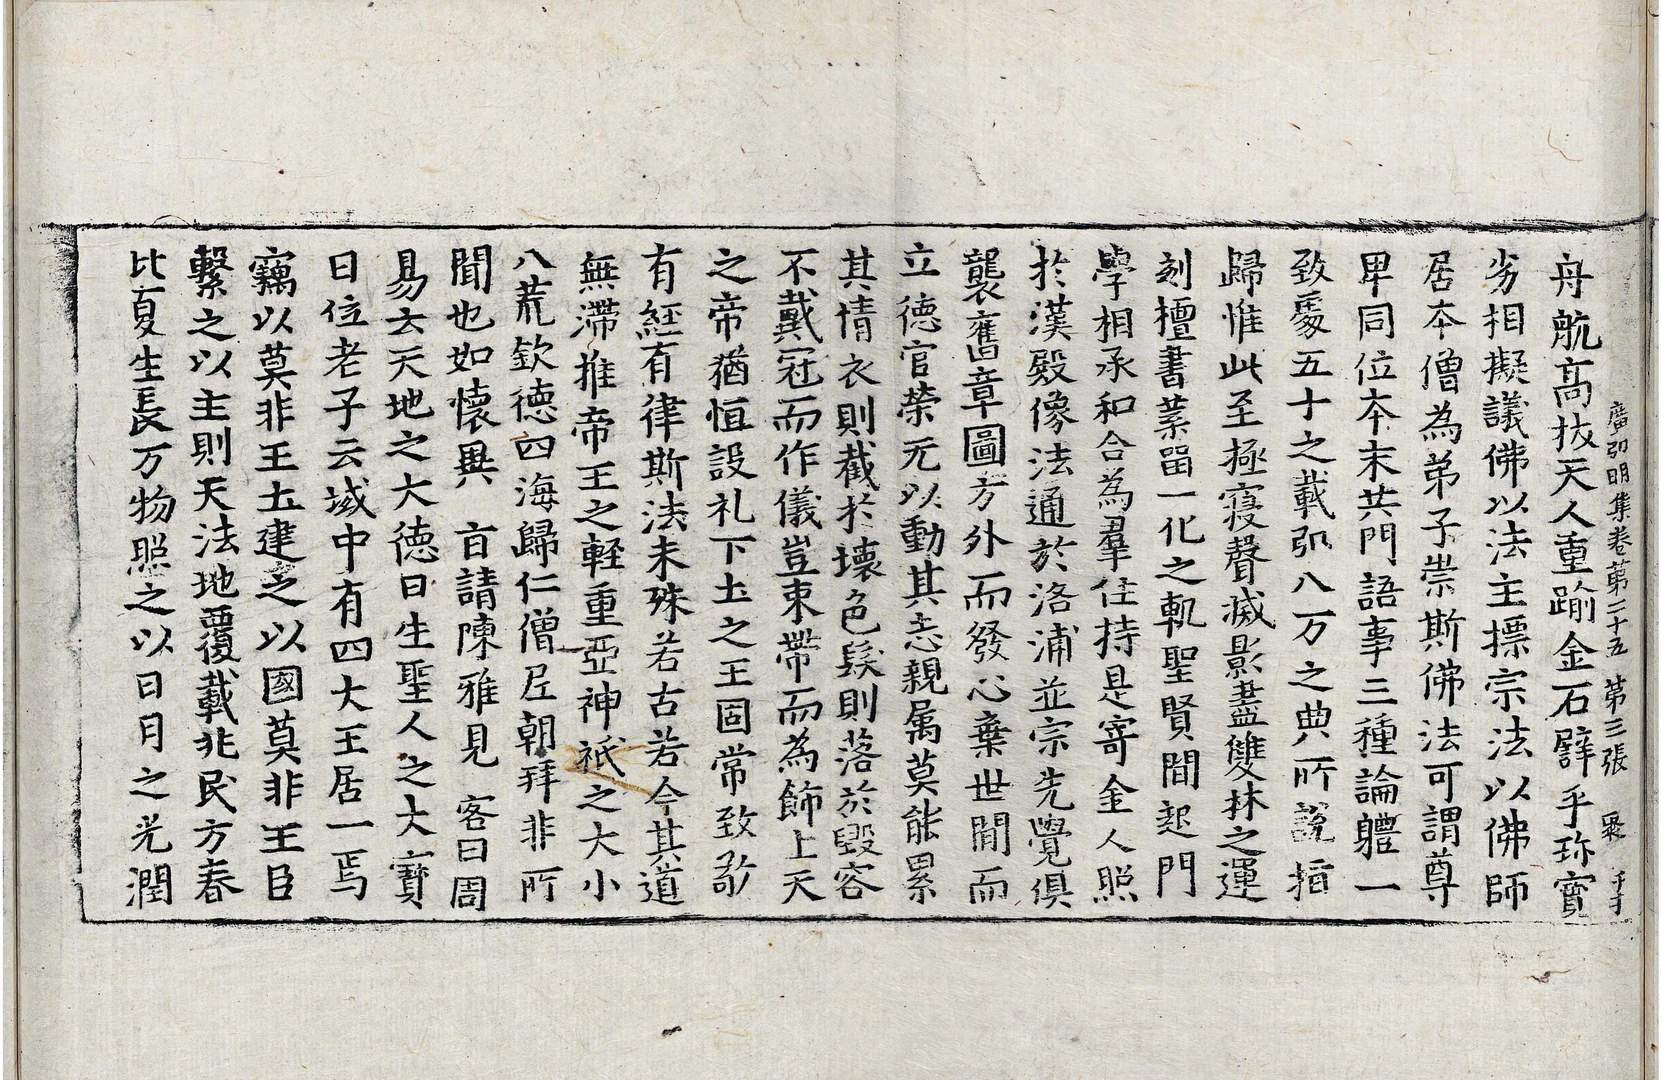 廣弘明集卷第二十五 第三張 聚
舟航高抜天人重踰金石譬乎珎寶
劣相擬議佛以法主摽宗法以佛師
居本僧為弟子崇斯佛法可謂尊
卑同位本末共門語事三種論軆一
致𠁅五十之載弘八万之典所說指
歸惟此至極寢聲滅影盡雙林之運
刻檀書葉留一化之軌聖賢間起門
學相承和合為羣住持是寄金人照
於漢殿像法通於洛浦並宗先覺俱
襲舊章圖方外而發心棄世間而
立德官榮无以動其志親属莫能累
其情衣則截於壞色髮則落於毀容
不戴冠而作儀豈束帶而為飾上天
之帝猶恒設礼下土之王固常致敬
有經有律斯法未殊若古若今其道
無滯推帝王之軽重亞神祇之大小
八荒欽德四海歸仁僧尼朝拜非所
聞也如懷異旨請陳雅見 客曰周
易云天地之大德曰生聖人之大寶
曰位老子云域中有四大王居一焉
竊以莫非王土建之以國莫非王臣
繫之以主則天法地覆載兆民方春
比夏生長万物照之以日月之光潤